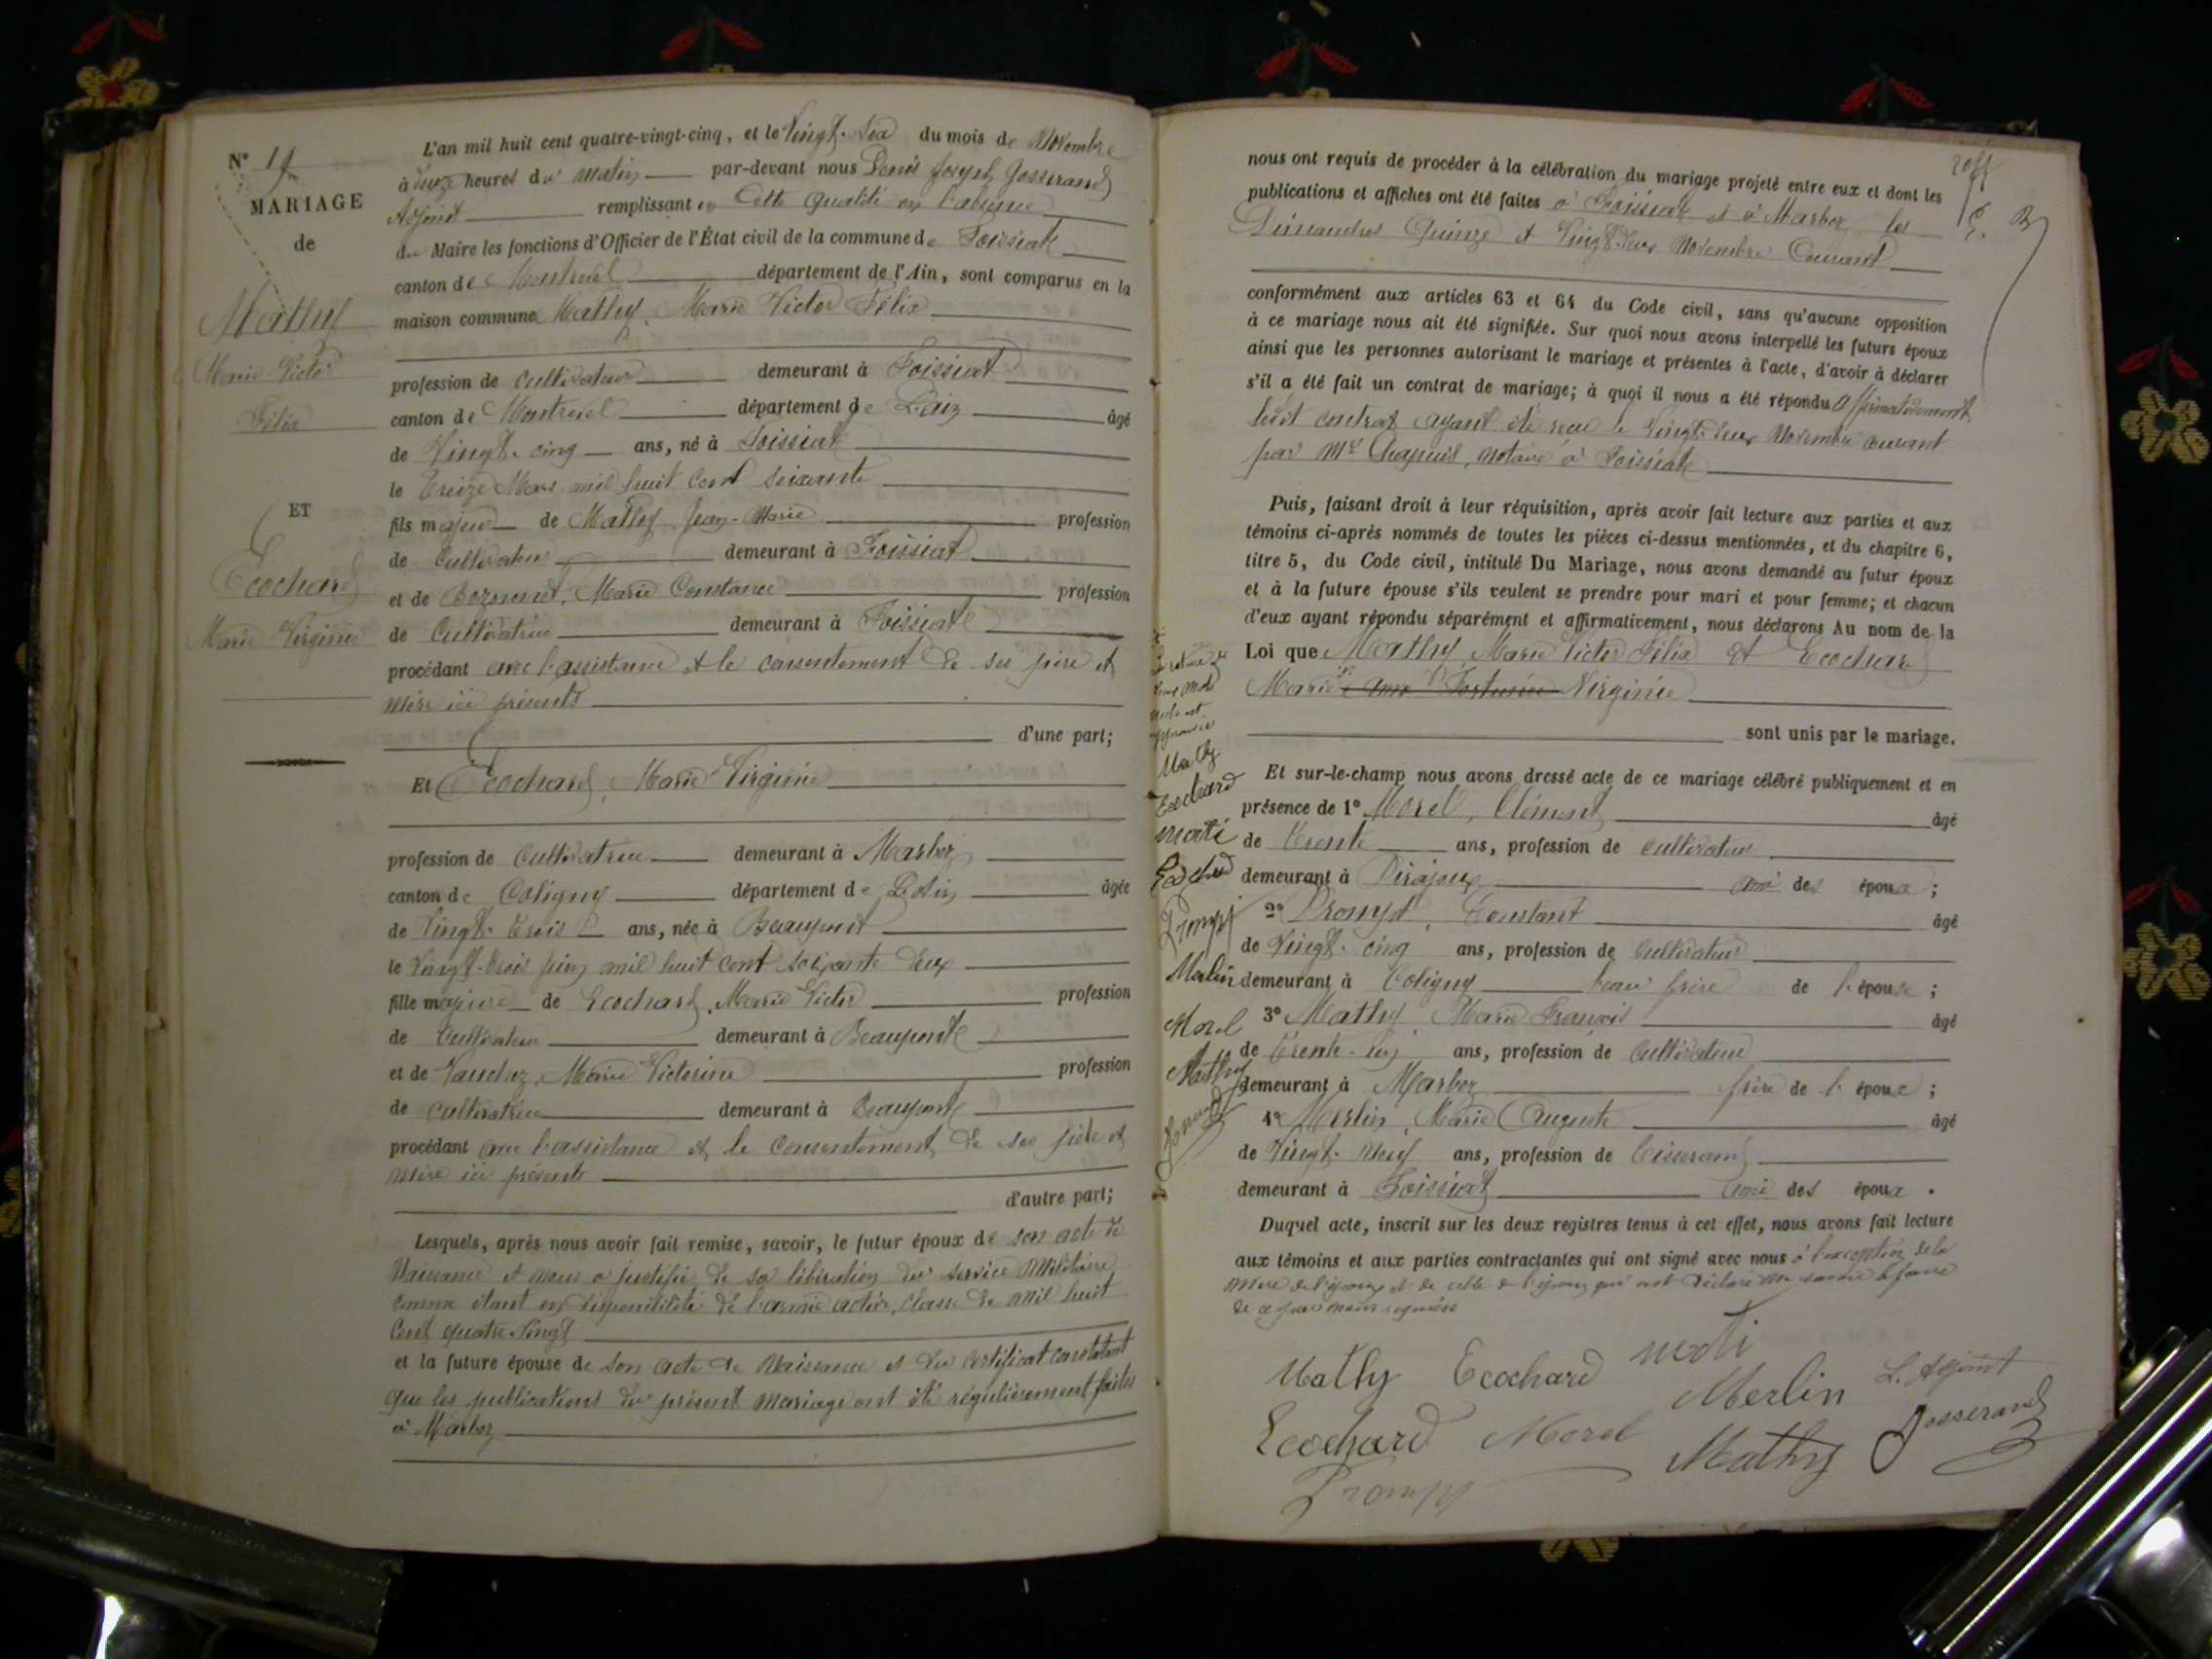 N° 19
MARIAGE
de
Mathy
Marie Victor
Félix
ET
Ecochard
Marie Virginie
L'an mil huit cent quatre-vingt-cinq, et le Vingt-Six du mois de Novembre
à heures du matin par-devant nous Denis Joseph Josserand
Adjoint remplissant en Cette qualité en l'absence
du Maire les fonctions d'Officier de l'État civil de la commune de Foissiat
canton de Montrevel département de l'Ain, sont comparus en la
maison commune Mathy, Marie Victor Félix
profession de cultivateur demeurant à Foissiat
canton de Montrevel département de L'ain âgé
de Vingt-cinq ans, né à Foissiat
le Treize Mars mil huit cent soixante
fils majeur de Mathy Jean-Marie profession
de Cultivateur demeurant à Foissiat
et de Bozonnet, Marie Constance profession
de Cultivatrice demeurant à Foissiat
procédant avec l'assistance et le consentement de ses père et
mère ici présents
d'une part;
Et Ecochard, Marie Virginie
profession de Cultivatrice demeurant à Marboz
canton de Coligny département de L'Ain âgée
de Vingt-trois ans, née à Beaupont
le Vingt-trois juin mil huit cent soixante deux
fille majeure de Ecochard, Marie Victor profession
de Cultivateur demeurant à Beaupont
et de Vauchez, Marie Victorine profession
de cultivatrice demeurant à Beaupont
procédant avec l'assistance et le consentement de ses père et
mère ici présents
d'autre part;
Lesquels, après nous avoir fait remise, savoir, le futur époux de son acte de
Naissance et nous a justifié de sa libération du service Militaire
comme étant en disponibilité de l'armée active, classe de mil huit
cent quatre-vingt
et la future épouse de son acte de Naissance et du certificat constatant
que les publications du présent mariage ont été régulièrement faites
à Marboz
nous ont requis de procéder à la célébration du mariage projeté entre eux et dont les
publications et affiches ont été faites à Foissiat et à Marboz les
Dimanches Quinze et Vingt-deux Novembre Courant
conformément aux articles 63 et 64 du Code civil, sans qu'aucune opposition
à ce mariage nous ait été signifiée. Sur quoi nous avons interpellé les futurs époux
ainsi que les personnes autorisant le mariage et présentes à l'acte, d'avoir à déclarer
s'il a été fait un contrat de mariage; à quoi il nous a été répondu affirmativement
ledit contrat ayant été reçu le Vingt-deux Novembre courant
par Me Chapuis, notaire à Foissiat
Puis, faisant droit à leur réquisition, après avoir fait lecture aux parties et aux
témoins ci-après nommés de toutes les pièces ci-dessus mentionnées, et du chapitre 6,
titre 5, du Code civil, intitulé Du Mariage, nous avons demandé au futur époux
et à la future épouse s'ils veulent se prendre pour mari et pour femme; et chacun
d'eux ayant répondu séparément et affirmativement, nous déclarons Au nom de la
Loi que Mathy Marie Victor Félix et Ecochard
Marie Virginie
sont unis par le mariage.
Mathy
Ecochard
moti
Ecochard
Prompt
Merlin
Morel
Mathy
Josserand
Et sur-le-champ nous avons dressé acte de ce mariage célébré publiquement et en
présence de 1° Morel, Clément âgé
de Trente ans, profession de cultivateur
demeurant à Pirajoux ami des époux;
2° Prompt, Constant âgé
de Vingt-cinq ans, profession de Cultivateur
demeurant à Coligny beau frère de l'épouse;
3° Mathy, Marie François âgé
de Trente-un ans, profession de Cultivateur
demeurant à Marboz frère de l'époux;
4° Merlin, Marie Auguste âgé
de Vingt-Neuf ans, profession de Tisserand
demeurant à Foissiat ami des époux.
Duquel acte, inscrit sur les deux registres tenus à cet effet, nous avons fait lecture
aux témoins et aux parties contractantes qui ont signé avec nous à l'exception de la
mère de l'époux et de celle de l'épouse qui ont déclaré ne savoir le faire
de ce par nous requises
Mathy Ecochard moti
Merlin L. Adjoint
Ecochard Morel Mathy Josserand
Prompt